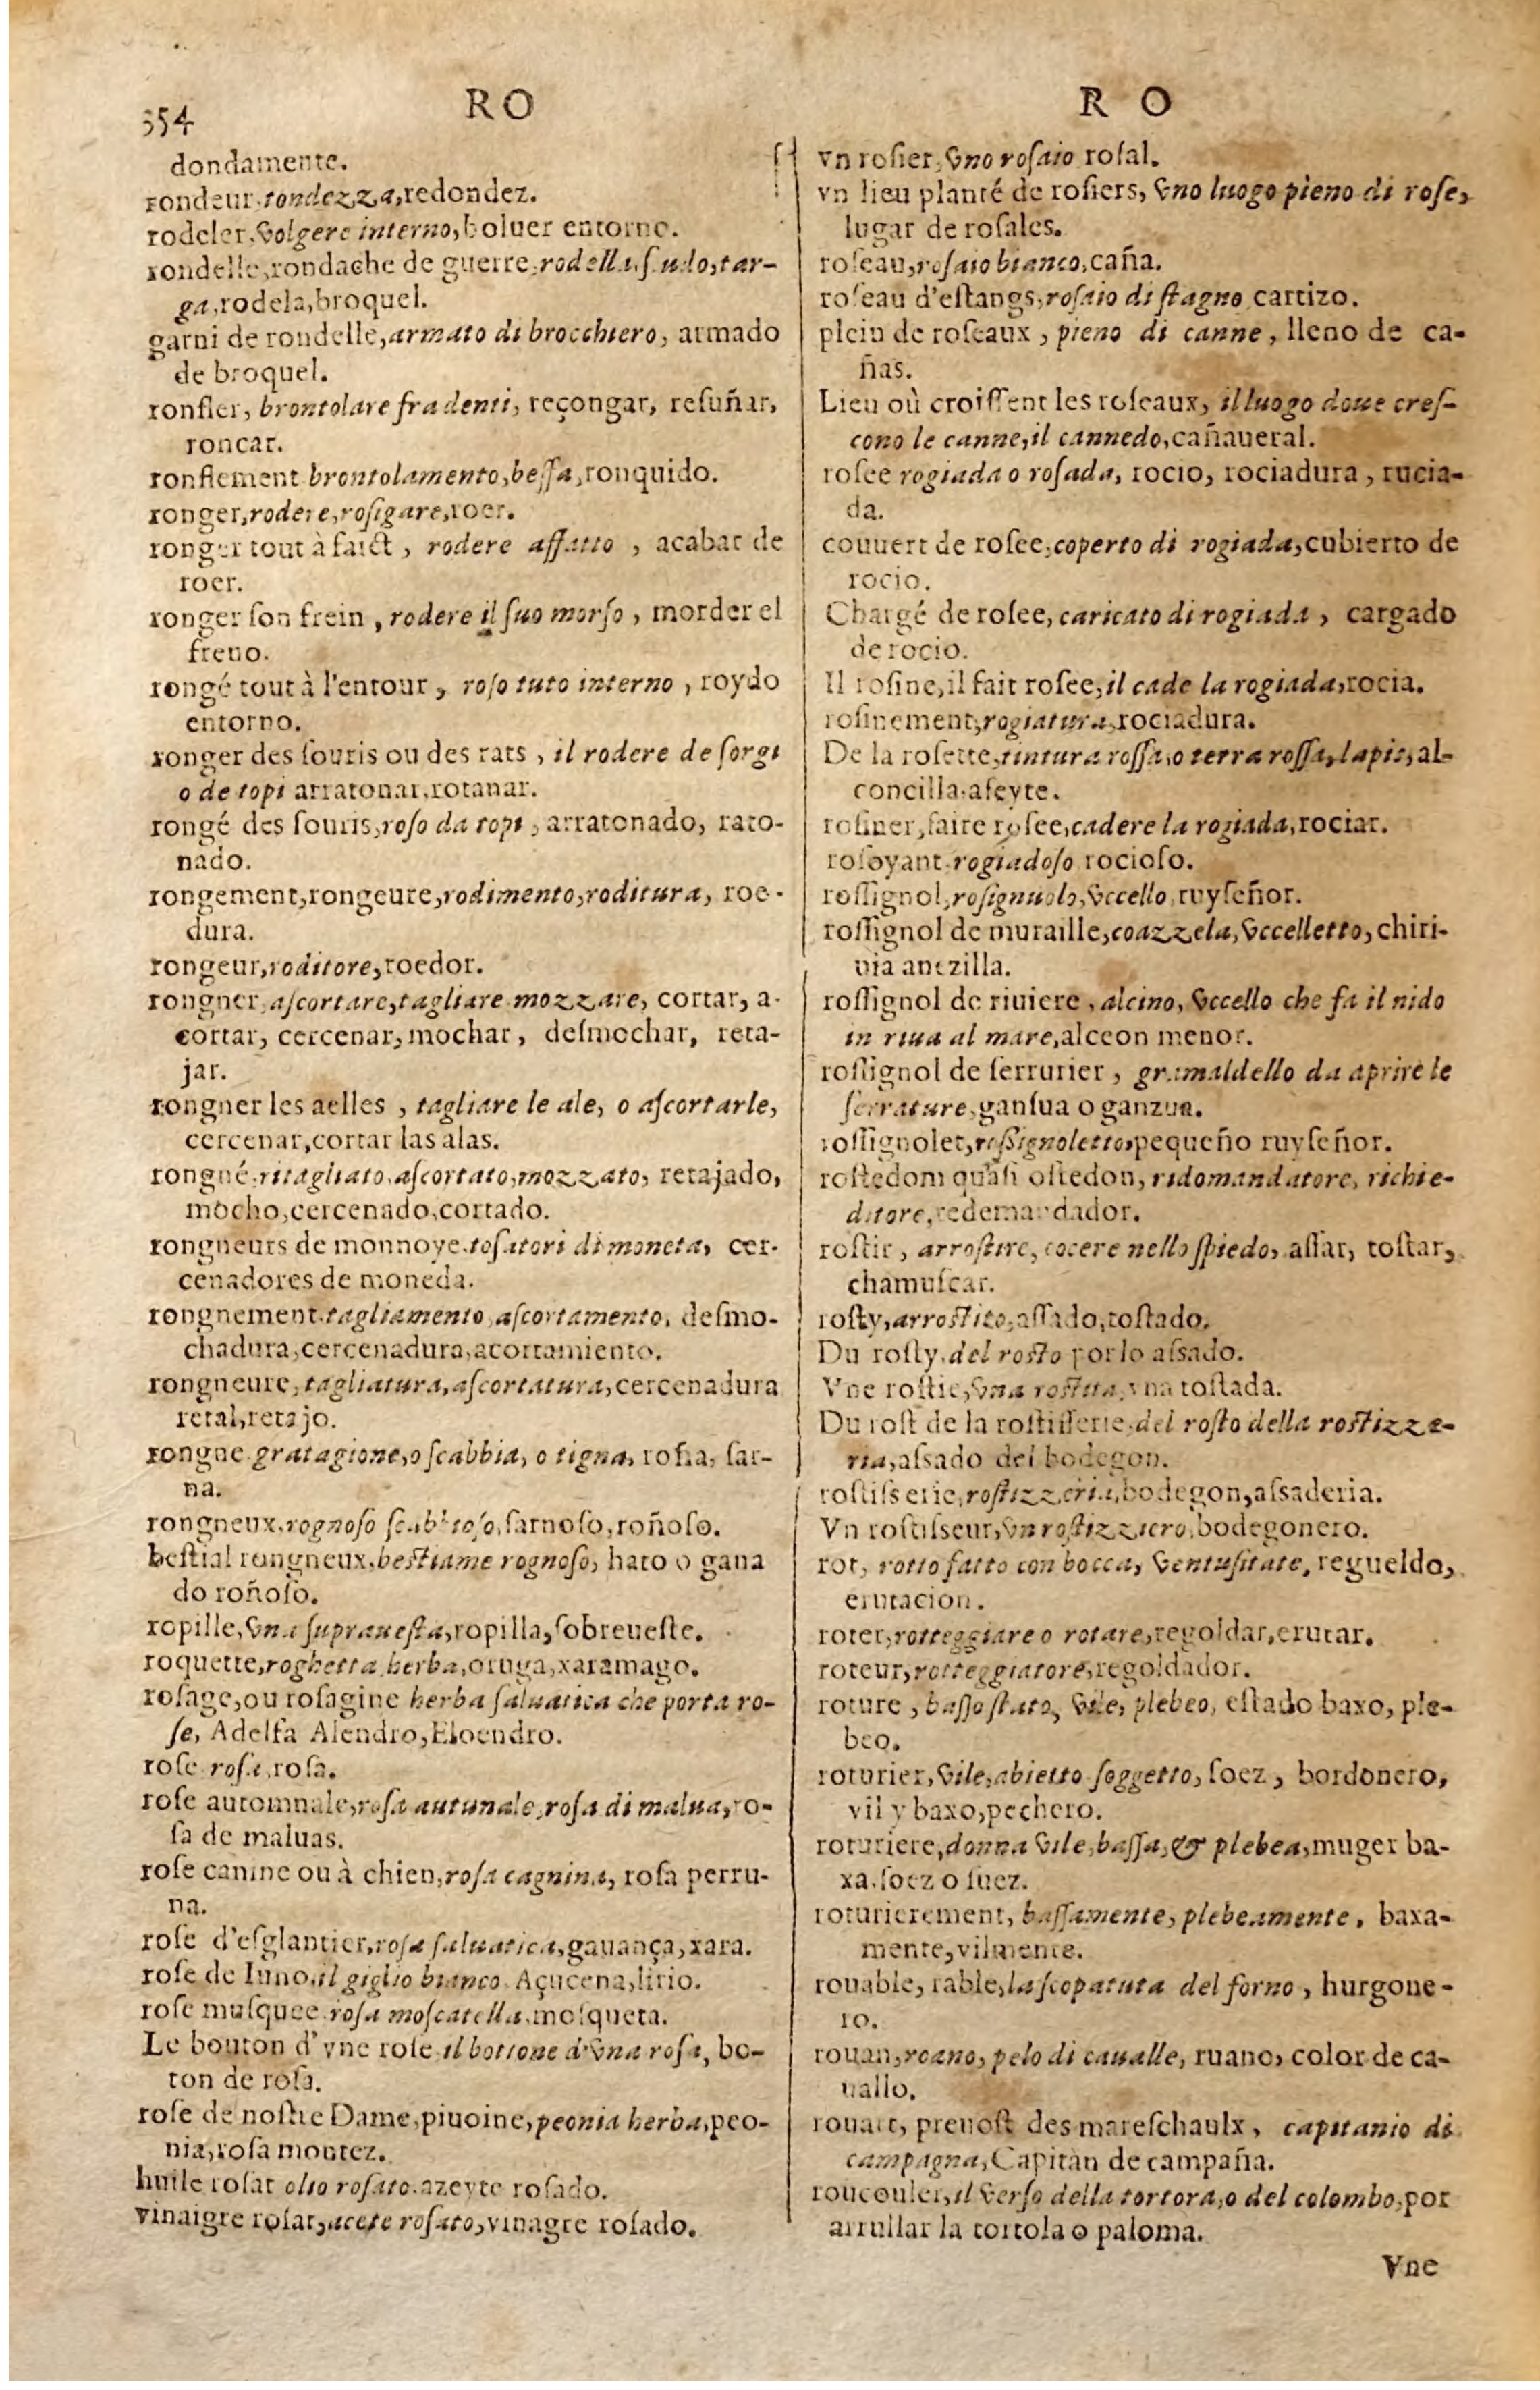 354
RO
dondamente.
rondeur, tondezza, redondez.
rodeler, volgere interno, boluer entorno.
rondelle, rondache de guerre, rodella, scudo, tar-
ga, rodela, broquel.
garni de rondelle, armato di brocchiero, armado
de broquel.
ronfler, brontolare fra denti, reçongar, refuñar,
roncar.
ronflement brontolamento, beffa, ronquido.
ronger, rodere, rosigare, roer.
ronger tout à faict, rodere affatto, acabar de
roer.
ronger son frein, rodere il suo morso, morder el
freno.
rongé tout à l'entour, roso tuto interno, roydo
entorno.
ronger des souris ou des rats, il rodere de sorgi
o de topi arratonar, rotanar.
rongé des souris, roso da topi, arratonado, rato-
nado.
rongement, rongeure, rodimento, roditura, roe-
dura.
rongeur, roditore, roedor.
rongner, ascortare, tagliare mozzare, cortar, a-
cortar, cercenar, mochar, desmochar, reta-
jar.
rongner les aelles, tagliare le ale, o ascortarle,
cercenar, cortar las alas.
rongné, ritagliato, ascortato, mozzato, retajado,
mocho, cercenado, cortado.
rongneurs de monnoye, tosatori di moneta, cer-
cenadores de moneda.
rongnement, tagliamento, ascortamento, desmo-
chadura, cercenadura, acortamiento.
rongneure, tagliatura, ascortatura, cercenadura
retal, retajo.
rongne gratagione, o scabbia, o tigna, roña, sar-
na.
rongneux, rognoso scabbioso, sarnoso, roñoso.
bestial rongneux, bestiame rognoso, hato o gana
do roñoso.
ropille, vna suprauesta, ropilla, sobreueste.
roquette, roghetta herba, oruga, xaramago.
rosage, ou rosagine herba saluatica che porta ro-
se, Adelfa Alendro, Eloendro.
rose rosa, rosa.
rose automnale, rosa autunale, rosa di malua, ro-
sa de maluas.
rose canine ou à chien, rosa cagnina, rosa perru-
na.
rose d'esglantier, rosa saluatica, gauança, xara.
rose de Iuno, il giglio bianco Açucena, lirio.
rose musquee, rosa moscatella, mosqueta.
Le bouton d'vne rose il bottone d'vna rosa, bo-
ton de rosa.
rose de nostre Dame, piuoine, peonia herba, peo-
nia, rosa montez.
huile rosat olio rosato, azeyte rosado.
vinaigre rosat, acete rosato, vinagre rosado.
RO
vn rosier, vno rosaio rosal.
vn lieu planté de rosiers, vno luogo pieno di rose,
lugar de rosales.
roseau, rosaio bianco, caña.
roseau d'estangs, rosaio di stagno carrizo.
plein de roseaux, pieno di canne, lleno de ca-
ñas.
Lieu où croissent les roseaux, il luogo doue cres-
cono le canne, il cannedo, cañaueral.
rosee rogiada o rosada, rocio, rociadura, rucia-
da.
couuert de rosee, coperto di rogiada, cubierto de
rocio.
Chargé de rosee, caricato di rogiada, cargado
de rocio.
Il rosine, il fait rosee, il cade la rogiada, rocia.
rosinement, rogiatura, rociadura.
De la rosette, tintura rossa, o terra rossa, lapis, al-
concilla, afeyte.
rosiner, faire rosee, cadere la rogiada, rociar.
rosoyant, rogiadoso rocioso.
rossignol, rosignuolo, vccello, ruyseñor.
rossignol de muraille, coazzela, vccelletto, chiri-
uia anezilla.
rossignol de riuiere, alcino, vccello che fa il nido
in riua al mare, alceon menor.
rossignol de serrurier, grimaldello da aprire le
serrature, gansua o ganzua.
rossignolet, rossignoletto, pequeño ruyseñor.
rostedom quasi ostedon, ridomandatore, richie-
ditore, redemandador.
rostir, arrostire, cocere nello spiedo, assar, tostar,
chamuscar.
rosty, arrostito, assado, tostado.
Du rosty, del rosto por lo assado.
Vne rostie, vna rostita, vna tostada.
Du rost de la rostisserie, del rosto della rostizze-
ria, assado del bodegon.
rostisserie, rostizzeria, bodegon, assaderia.
Vn rostisseur, vn rostizziero, bodegonero.
rot, rotto fatto con bocca, ventusitate, regueldo,
erutacion.
roter, rotteggiare o rotare, regoldar, erutar.
roteur, rotteggiatore, regoldador.
roture, basso stato, vile, plebeo, estado baxo, ple-
beo.
roturier, vile, abietto soggetto, soez, bordonero,
vil y baxo, pechero.
roturiere, donna vile, bassa, & plebea, muger ba-
xa, soez o suez.
roturierement, bassamente, plebeamente, baxa-
mente, vilmente.
rouable, rable, la scopatuta del forno, hurgone-
ro.
rouan, roano, pelo di caualle, ruano, color de ca-
uallo.
rouart, preuost des mareschaulx, capitanio di
campagna, Capitan de campaña.
roucouler, il verso della tortora, o del colombo, por
arrullar la tortola o paloma.
Vne